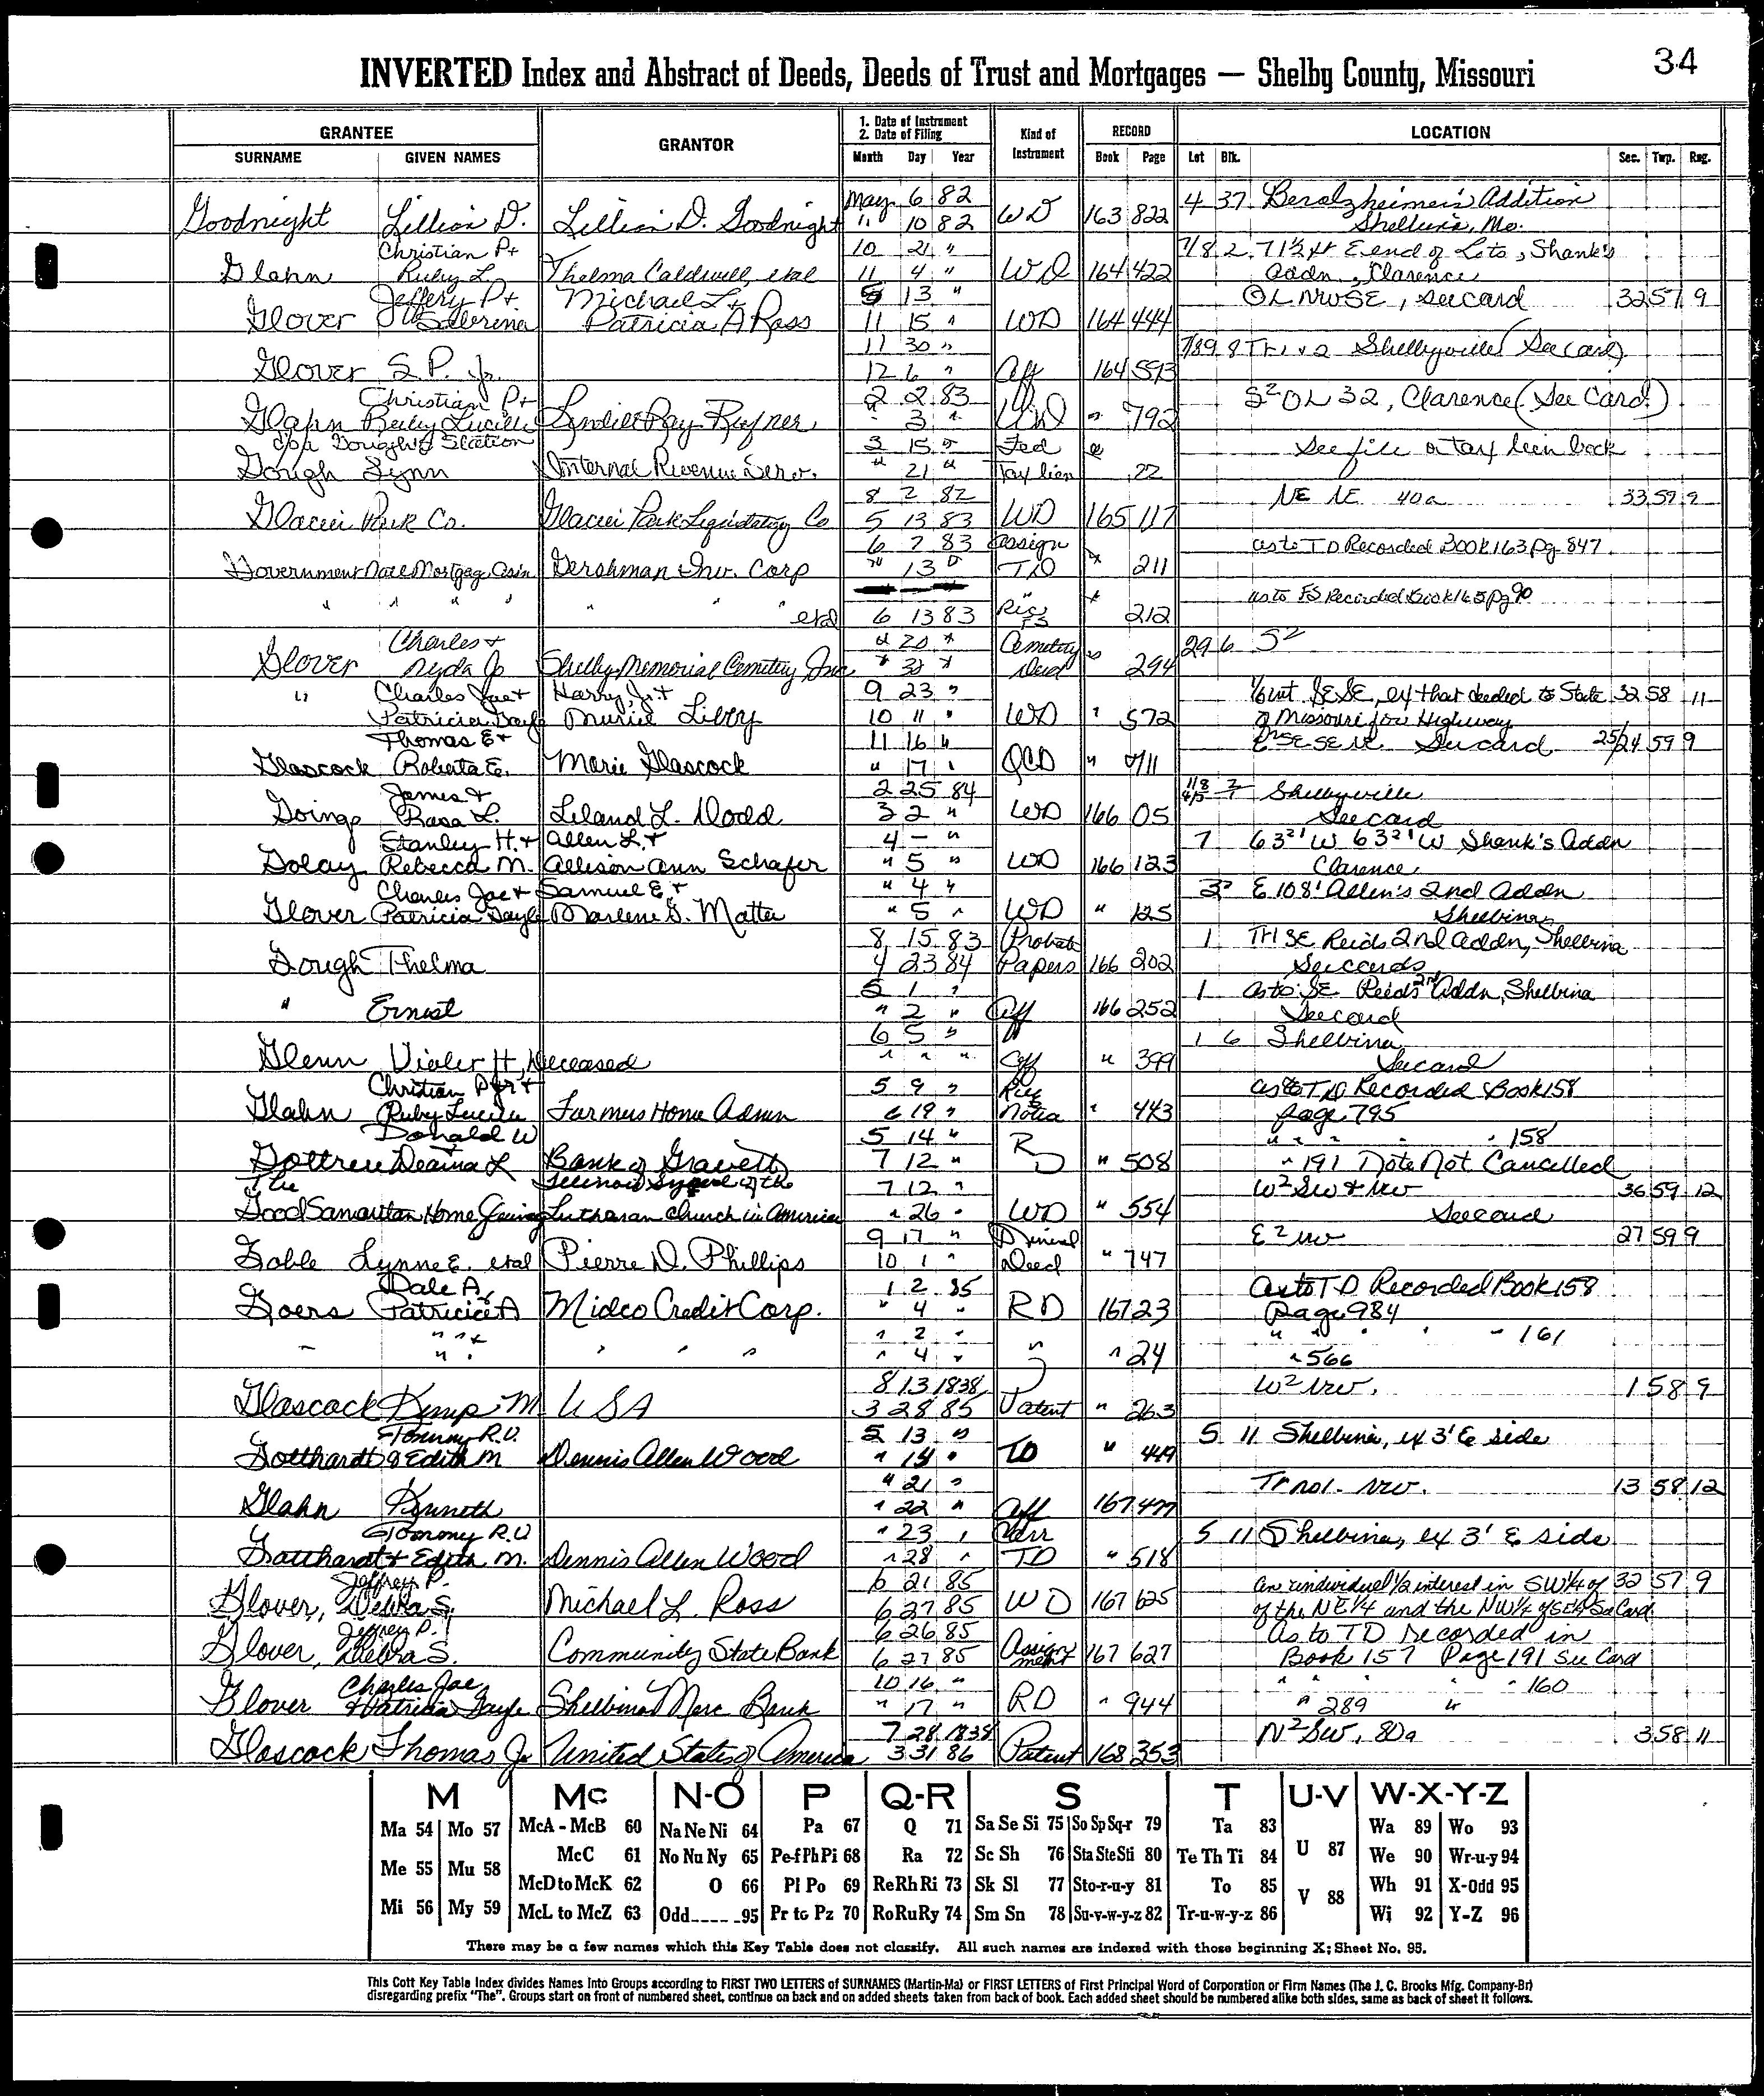 34
INVERTED Index and Abstract of Deeds, Deeds of Trust and Mortgages — Shelby County, Missouri
GRANTEE GRANTOR 1. Date of Instrument 2. Date of Filing Kind of Instrument RECORD LOCATION
SURNAME GIVEN NAMES Month Day Year Book Page Lot Blk. Sec. Twp. Rng.
May 6 82 4 37 Beralzheimer's Addition
Goodnight Lillian D. Lillian D. Goodnight " 10 82 WD 163 822 Shelbina, Mo.
Christian P + 10 21 " 7/8 2 71½ ft E end of Lots, Shank's
Glahn Ruby L. Thelma Caldwell, etal 11 4 " WD 164 422 Addn, Clarence
Jeffery P + Michael L + 13 " OL NWSE, see card 32 57 9
Glover Sabrina Patricia A Ross 11 15 " WD 164 444
11 30 " 7/8 9 8 Tr 1 + 2 Shelbyville (See Card)
Glover S.P. Jr. 12 6 " Aff 164 593
Christian P + 2 2 83 S² OL 32, Clarence (See Card)
Glahn Ruby Lucille Ray " 3 " WD " 792
Gough's Station 3 15 " Fed see file or tax lien book
Gough Lynn Internal Revenue Serv. " 21 " Tax lien 22
8 2 82 NE NE 40a 33 59 9
Glacier Park Co. Glacier Park Liquidating Co 5 13 83 WD 165 117
6 7 83 Assign as to TD Recorded Book 163 pg. 847
Government Mortgage Assn Gershman Inv. Corp " 13 " TD " 211
as to FS Recorded Book 165 pg 90
" " " " " " etal 6 13 83 FS 212
Charles + " 20 " Cemetery 29 6 S²
Glover Nyda Jo Shelby Memorial Cemetery Inc " 30 " Deed 294
" Charles Joe + Harry Jr. + 9 23 " SESE, ex that deeded to State 32 58 11
Patricia Gayle Libby 10 11 " WD " 572 of Missouri for Highway
Thomas E + 11 16 " SE SE NE See card 25/24 59 9
Glascock Roberta E. Marie Glascock " 17 " QCD " 711
James + 2 25 84 Shelbyville
Goings Rosa L. Leland L. Dodd 3 2 " WD 166 05 See card
Stanley H. + Allen L. + 4 — " 7 Shank's Addn
Golay Rebecca M. Allison Ann Schafer " 5 " WD 166 123 Clarence
Charles Joe + Samuel E. + " 4 " E 108' Allen's 2nd Addn
Glover Patricia Gayle Marlene G. Matter " 5 " WD " 125 Shelbina
8 15 83 Probate 1 Tr SE Reids 2nd Addn, Shelbina
Gough Thelma 4 23 84 Papers 166 202 See cards
5 1 " 1 as to SE Reids 2nd Addn, Shelbina
" Ernest " 2 " Aff 166 252 See card
6 5 " 1 6 Shelbina
Glenn H, Deceased " " " Aff " 399 See card
Christian P Jr + 5 9 " as to TD Recorded Book 158
Glahn Ruby Lucille Farmers Home Admn 6 19 " " 443 page 795
Donald W 5 14 " " " " " " 158
Deaina L Bank of Gravett 7 12 " RD " 508 " 191 Note Not Cancelled
The Illinois Synod of the 7 12 " W² SW + NW 36 59 12
Good Samaritan Home Lutheran Church in America " 26 " WD " 554 See card
9 17 " Mineral E² NW 27 59 9
Goble Lynne E. etal Pierre D. Phillips 10 1 " Deed " 747
Dale A, 1 2 85 As to TD Recorded Book 158
Goers Patricia A Midco Credit Corp. " 4 " RD 167 23 page 984
" " + " 2 " " " " " - 161
" " " " " " " 4 " " " 24 " 566
8 13 1838 W² NW. 1 58 9
Glascock Kemp M. USA 3 28 85 Patent " 263
Tommy R.V. 5 13 " 5 11 Shelbina, ex 3' E side
Gotthardt + Edith M Dennis Allen Wood " 14 " TD " 449
" 21 " NW. 13 58 12
Glahn Kenneth " 22 " Aff 167 477
Tommy R.V " 23 " Corr 5 11 Shelbina, ex 3' E side
Gotthardt + Edith M. Dennis Allen Wood " 28 " TD " 518
Jeffrey P. 6 21 85 an undivided ½ interest in SW¼ of 32 57 9
Glover, Debra S. Michael L. Ross 6 27 85 WD 167 625 of the NE¼ and the NW¼ of SE¼ See Card
Jeffrey P. 6 26 85 As to TD recorded in
Glover, Debra S. Community State Bank 6 27 85 Assignment 167 627 Book 157 Page 191 See Card
Charles Joe 10 16 " " " " " 160
Glover + Patricia Gayle Shelbina Merc Bank " 17 " RD " 944 " 289 "
7 28 1838 N² SW, 80a 3 58 11
Glascock Thomas Jr United States of America 3 31 86 Patent 168 353
M Mc N-O P Q-R S T U-V W-X-Y-Z
Ma 54 Mo 57 McA - McB 60 Na Ne Ni 64 Pa 67 Q 71 Sa Se Si 75 So Sp Sq-r 79 Ta 83 U 87 Wa 89 Wo 93
Me 55 Mu 58 McC 61 No Nu Ny 65 Pe-f Ph Pi 68 Ra 72 Sc Sh 76 Sta Ste Sti 80 Te Th Ti 84 We 90 Wr-u-y 94
McD to McK 62 O 66 Pl Po 69 Re Rh Ri 73 Sk Sl 77 Sto-r-u-y 81 To 85 V 88 Wh 91 X-Odd 95
Mi 56 My 59 McL to McZ 63 Odd----95 Pr to Pz 70 Ro Ru Ry 74 Sm Sn 78 Su-v-w-y-z 82 Tr-u-w-y-z 86 Wi 92 Y-Z 96
There may be a few names which this Key Table does not classify. All such names are indexed with those beginning X; Sheet No. 95.
This Cott Key Table Index divides Names Into Groups according to FIRST TWO LETTERS of SURNAMES (Martin-Ma) or FIRST LETTERS of First Principal Word of Corporation or Firm Names (The J. C. Brooks Mfg. Company-Br)
disregarding prefix "The". Groups start on front of numbered sheet, continue on back and on added sheets taken from back of book. Each added sheet should be numbered alike both sides, same as back of sheet it follows.